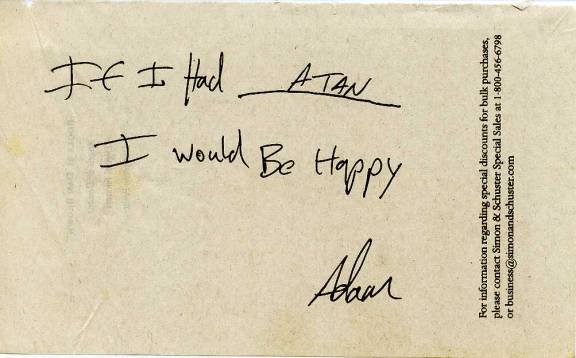 If I Had A TAN
I would Be Happy
Adam
For information regarding special discounts for bulk purchases,
please contact Simon & Schuster Special Sales at 1-800-456-6798
or business@simonandschuster.com